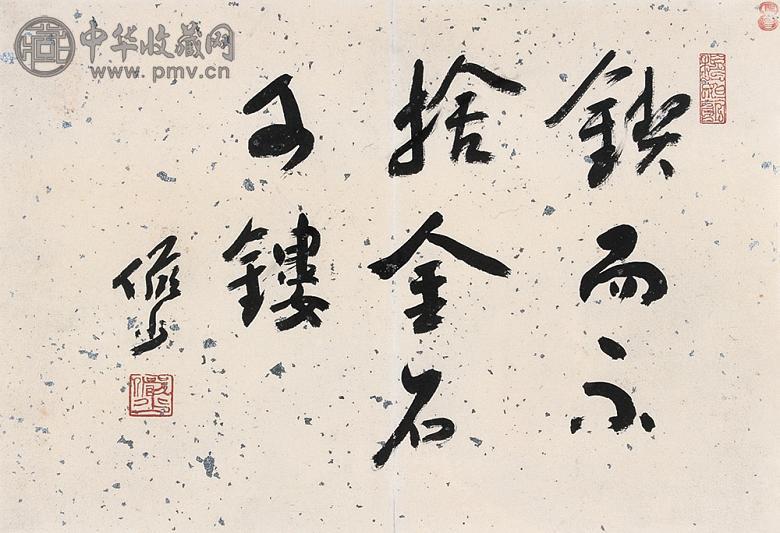 锲而不
捨金石
可鏤
中华收藏网
www.pmv.cn